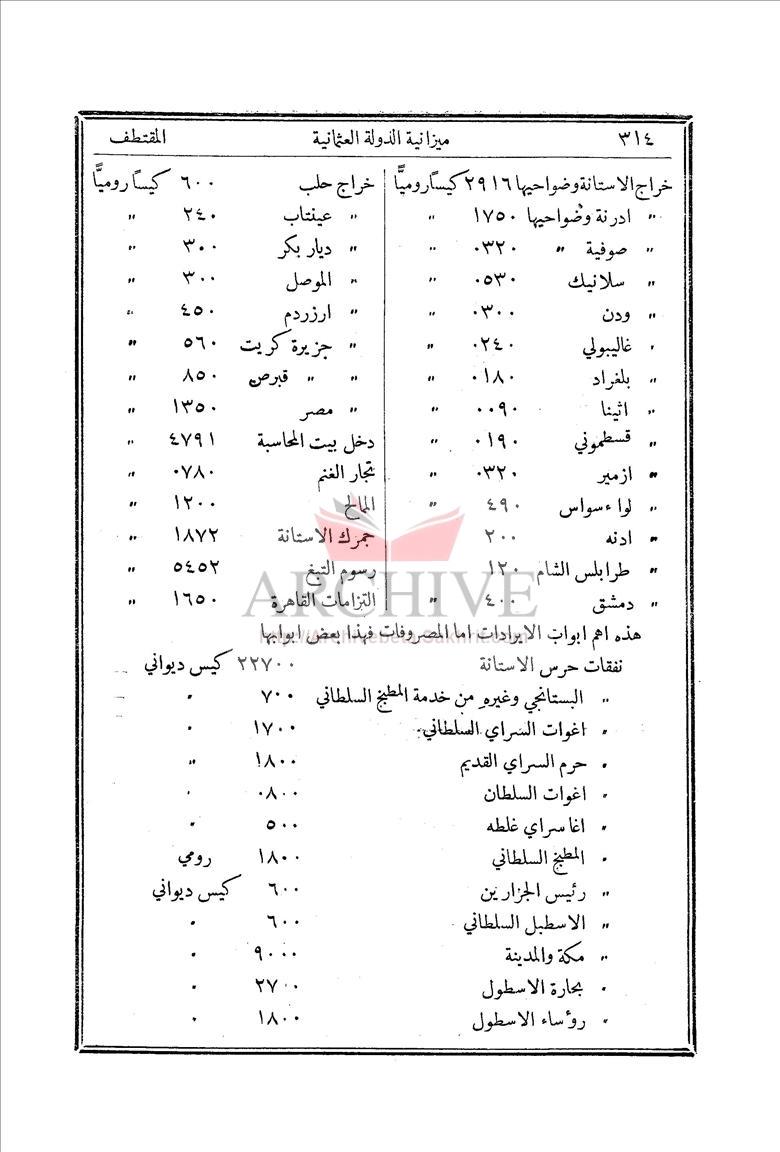 ٣١٤ ميزانية الدولة العثمانية المقتطف
خراج الاستانة وضواحيها ٢٩١٦ كيسًا روميًّا
" ادرنة وضواحيها ١٧٥٠ "
" صوفية " ٠٣٢٠ "
" سلانيك ٠٥٣٠ "
" ودن ٠٣٠٠ "
" غاليبولي ٠٢٤٠ "
" بلغراد ٠١٨٠ "
" اثينا ٠٠٩٠ "
" قسطموني ٠١٩٠ "
" ازمير ٠٣٢٠ "
" لواء سواس ٤٩٠ "
" ادنه ٢٠٠
" طرابلس الشام ١٢٠
" دمشق ٤٠٠ "
خراج حلب ٦٠٠ كيسًا روميًّا
" عينتاب ٢٤٠ "
" ديار بكر ٣٠٠ "
" الموصل ٣٠٠ "
" ارزردم ٤٥٠ "
" جزيرة كريت ٥٦٠ "
" " قبرص ٨٥٠ "
" مصر ١٣٥٠ "
دخل بيت المحاسبة ٤٧٩١ "
تجار الغنم ٠٧٨٠ "
المالح ١٢٠٠ "
جمرك الاستانة ١٨٧٢ "
رسوم التبغ ٥٤٥٢ "
التزامات القاهرة ١٦٥٠ "
ARCHIVE
هذه اهم ابواب الايرادات اما المصروفات فهذا بعض ابوابها
نفقات حرس الاستانة ٢٢٧٠٠ كيس ديواني
" البستانجي وغيره من خدمة المطبخ السلطاني ٧٠٠ "
" اغوات السراي السلطاني ١٧٠٠ "
" حرم السراي القديم ١٨٠٠ "
" اغوات السلطان ٠٨٠٠ "
" اغا سراي غلطه ٥٠٠ "
" المطبخ السلطاني ١٨٠٠ رومي
" رئيس الجزارين ٦٠٠ كيس ديواني
" الاسطبل السلطاني ٦٠٠ "
" مكة والمدينة ٩٠٠٠ "
" بحارة الاسطول ٢٧٠٠ "
" روءساء الاسطول ١٨٠٠ "